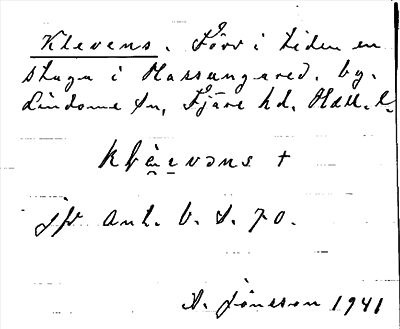 Klevens. Förr i tiden en
stuga i Hassungared. by.
Lindome sn, Fjäre hd. Hall. l.
klèevəns †
jfr ant. b. s. 70.
A. Jönsson 1941